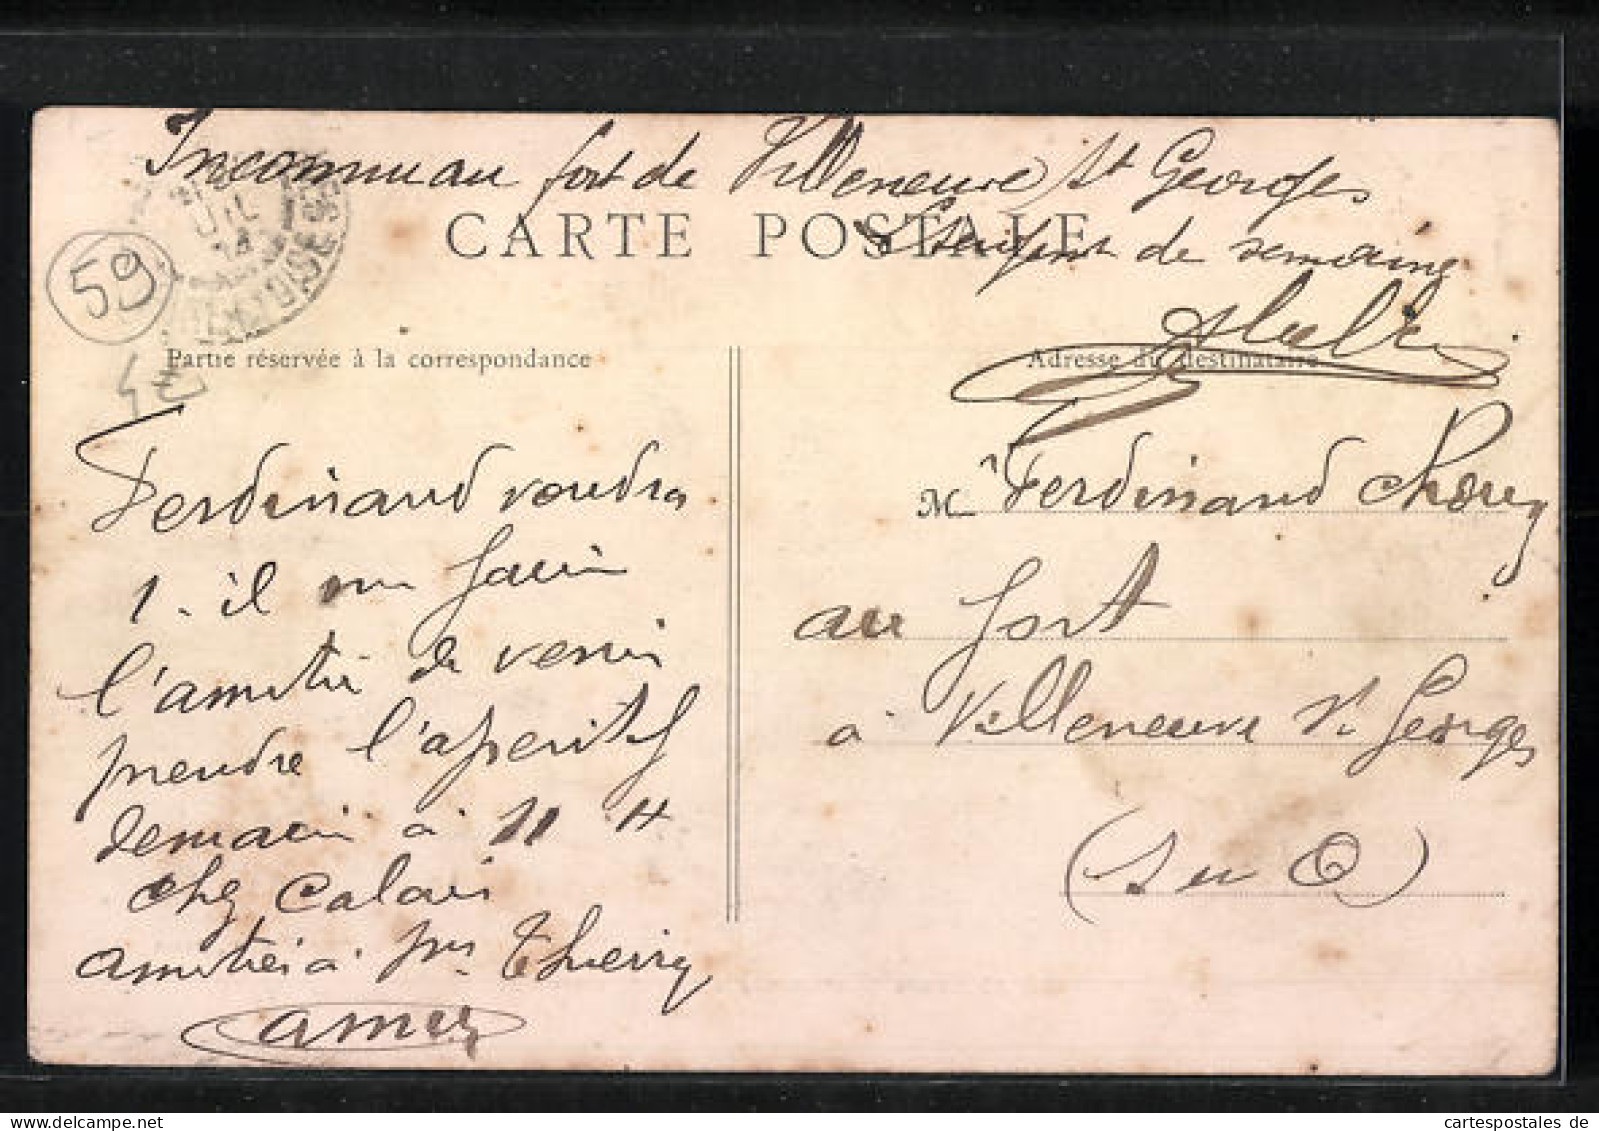 Inconnu au fort de Villeneuve St Georges
CARTE POSTALE
Le Sergent de semaine
59
Partie réservée à la correspondance
Adresse du destinataire
Ferdinand voudra
t-il me faire
l'amitié de venir
prendre l'aperitif
demain à 11 H
chez Calais
amitiés à Thierry
M Ferdinand
au fort
à Villeneuve St Georges
(S et O)
cartespostales de